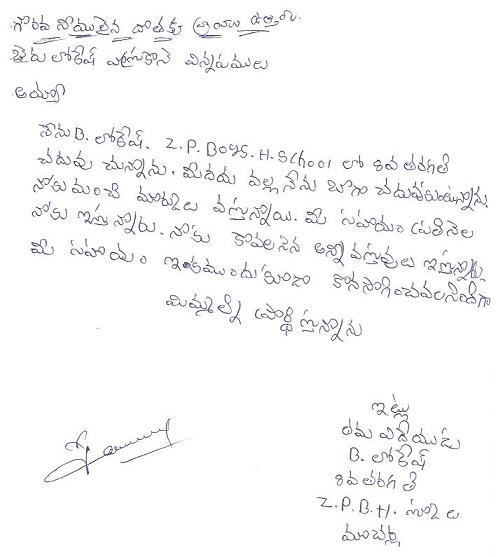 గౌరవ నీయులైన దాతకు
బైరు లోకేష్ వ్రాసుకొనే విన్నపములు
అయ్యా
నేను B. లోకేష్. Z.P. Boys. H. School లో 8వ తరగతి
చదువు చున్నాను. మీదయ వల్ల నేను బాగా చదువుకుంటున్నాను.
నాకు మంచి మార్కులు వస్తున్నాయి. మీ సహాయం ప్రతినెల
నాకు ఇస్తున్నారు. నాకు కావలసిన అన్ని వస్తువులు ఇస్తున్నారు
మీ సహాయం ఇకముందుకూడా కొనసాగించవలసిందిగా
మిమ్మల్ని ప్రార్థిస్తున్నాను
ఇట్లు
తమ విదేయుడు
B. లోకేష్
8వ తరగతి
Z.P.B.H. స్కూల